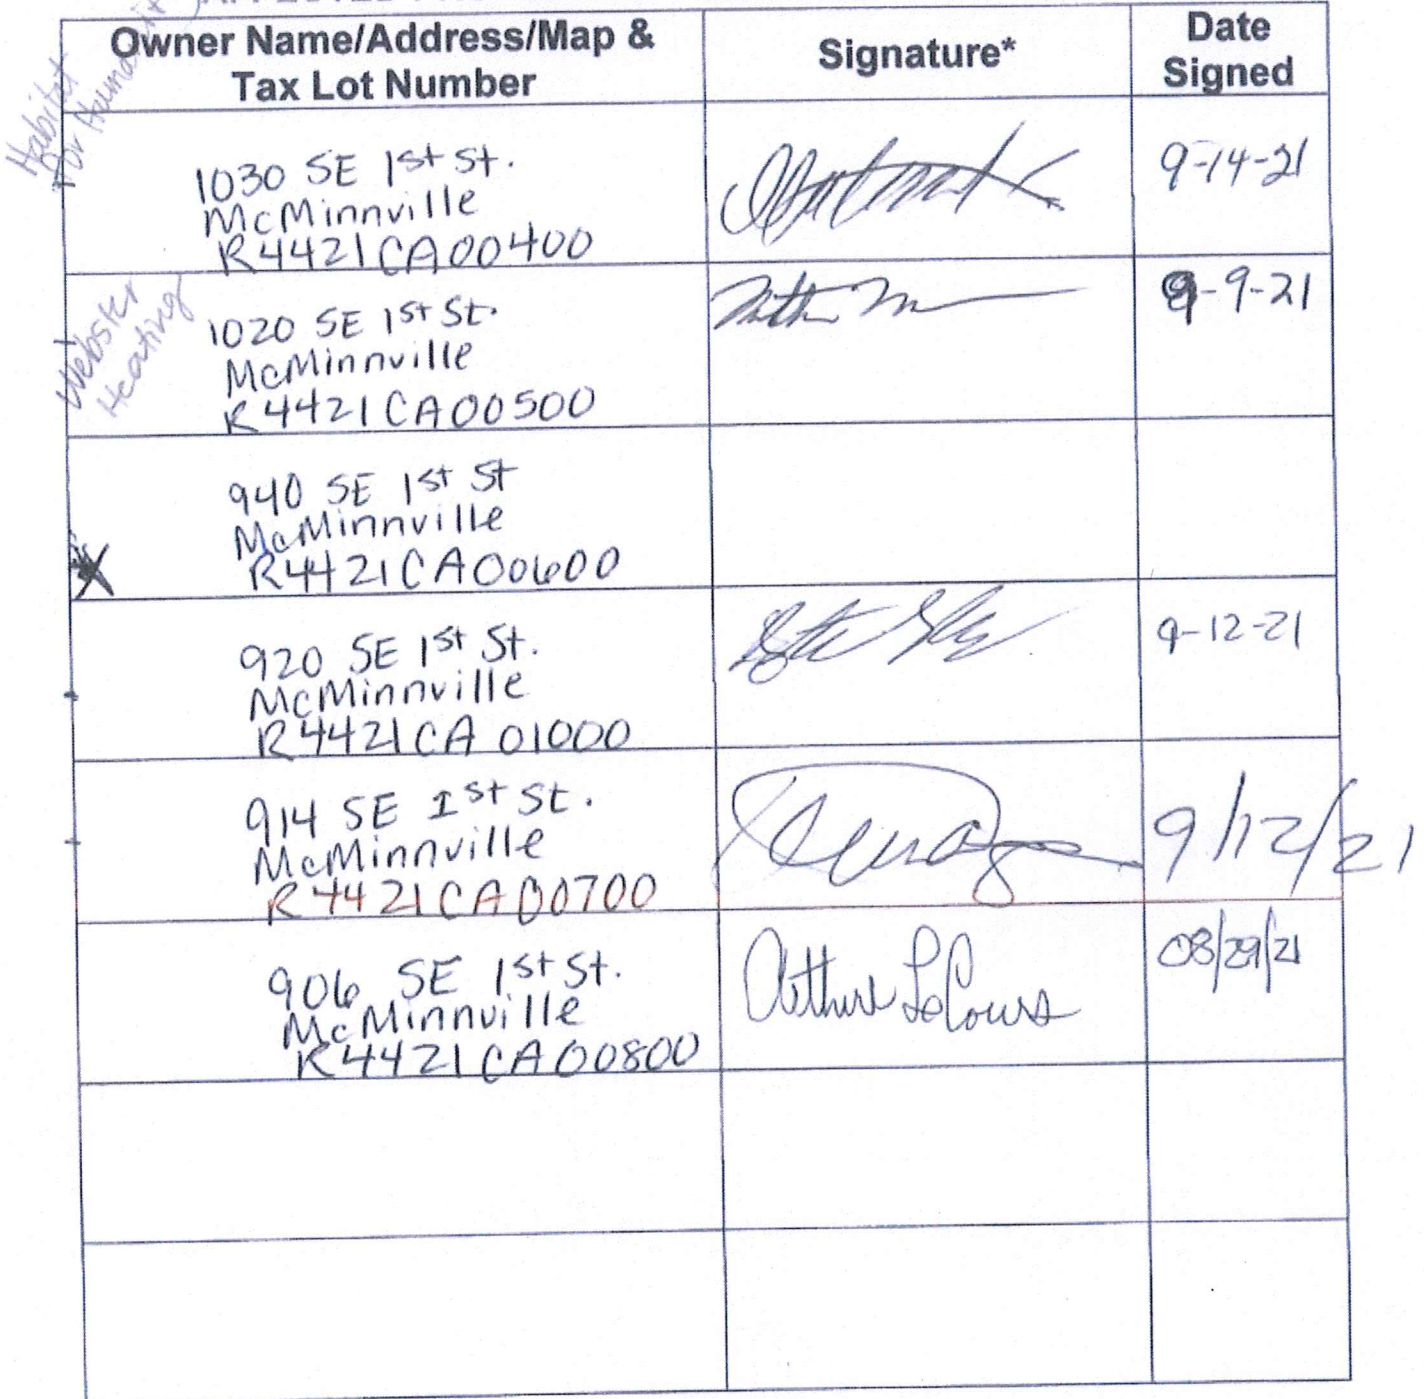 Owner Name/Address/Map &
Tax Lot Number
Signature*
Date
Signed
Habitat
for Humanity
1030 SE 1st St.
McMinnville
R4421CA00400
9-14-21
Webster
Heating
1020 SE 1st St.
McMinnville
R4421CA00500
9-9-21
940 SE 1st St
McMinnville
R4421CA00600
X
920 SE 1st St.
McMinnville
R4421CA 01000
9-12-21
914 SE 1st St.
McMinnville
R4421CA00700
9/12/21
906 SE 1st St.
McMinnville
R4421CA00800
Arthur LaCours
08/29/21